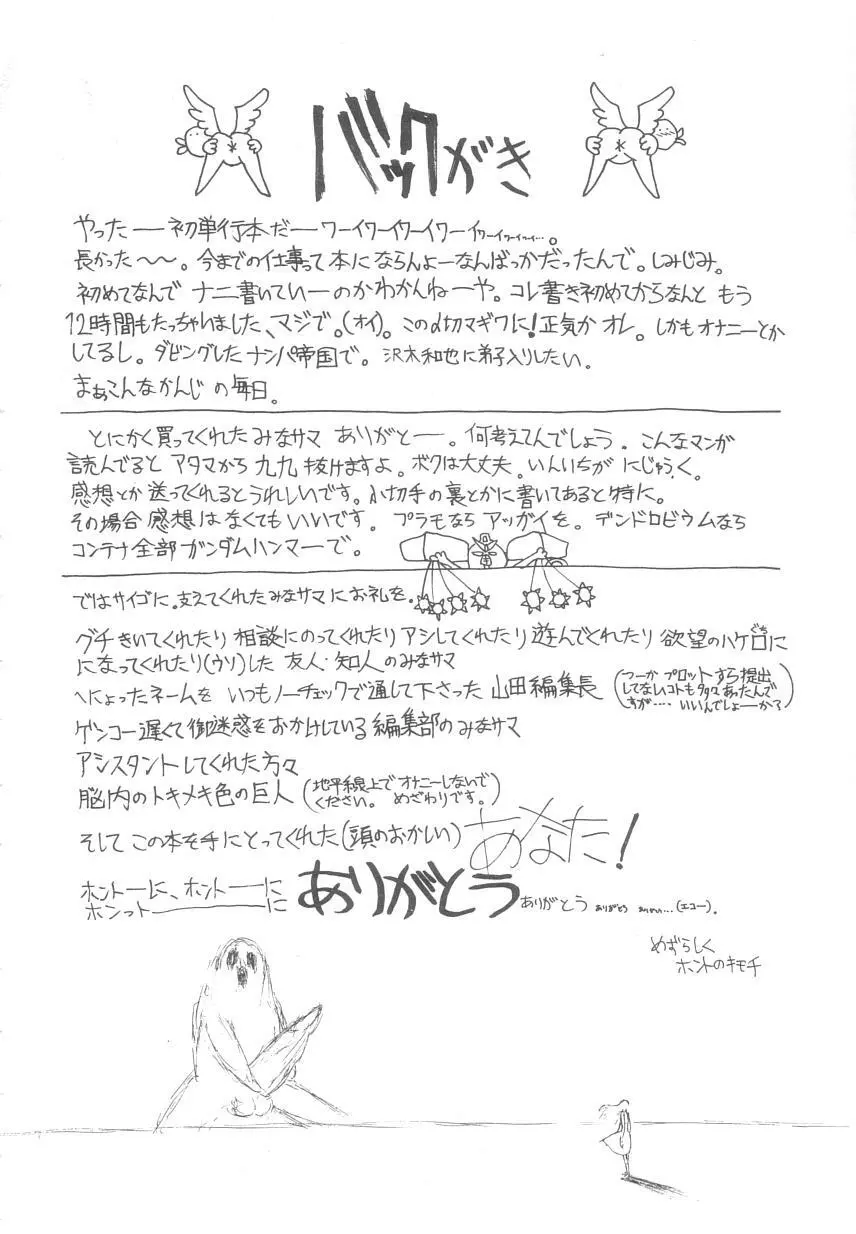 バックがき
やったー初単行本だーワーイワーイワーイワーイワーイワーイワーイ…。
長かった〜〜。今までの仕事って本にならんよーなんばっかだったんで。しみじみ。
初めてなんで ナニ書いていーのかわかんねーや。コレ書き初めてからなんと もう
12時間もたっちゃいました、マジで。(オイ)。この〆切マギワに!正気か オレ。しかもオナニーとか
してるし。ダビングしたナンパ帝国で。沢木和也に弟子入りしたい。
まぁこんなかんじの毎日。
とにかく買ってくれた みなサマ ありがとー。何考えてんでしょう。こんなマンガ
読んでると アタマから 九九 抜けますよ。ボクは大丈夫。いんいちが にじゅうく。
感想とか 送ってくれるとうれしいです。小切手の裏とかに書いてあると特に。
その場合 感想はなくてもいいです。プラモなら アッガイを。デンドロビウムなら
コンテナ全部ガンダムハンマーで。
ではサイゴに。支えてくれたみなサマにお礼を。
グチきいてくれたり 相談にのってくれたり アシしてくれたり 遊んでくれたり 欲望のハケ口に
ぐち
になってくれたり(ウソ)した 友人・知人のみなサマ
へにょったネームを いつもノーチェックで通して下さった 山田編集長
(つーか プロットすら提出
してないコトも多々あったんで
すが…‥ いいんでしょーか?)
ゲンコー遅くて御迷惑をおかけしている編集部のみなサマ
アシスタントしてくれた方々
脳内のトキメキ色の巨人
(地平線上でオナニーしないで
ください。 めざわりです。)
そして この本を手にとってくれた(頭のおかしい) あなた!
ホントーに、ホントーに
ホンットーーに ありがとう ありがとう ありがとう ありがとう…(エコー)。
めずらしく
ホントのキモチ